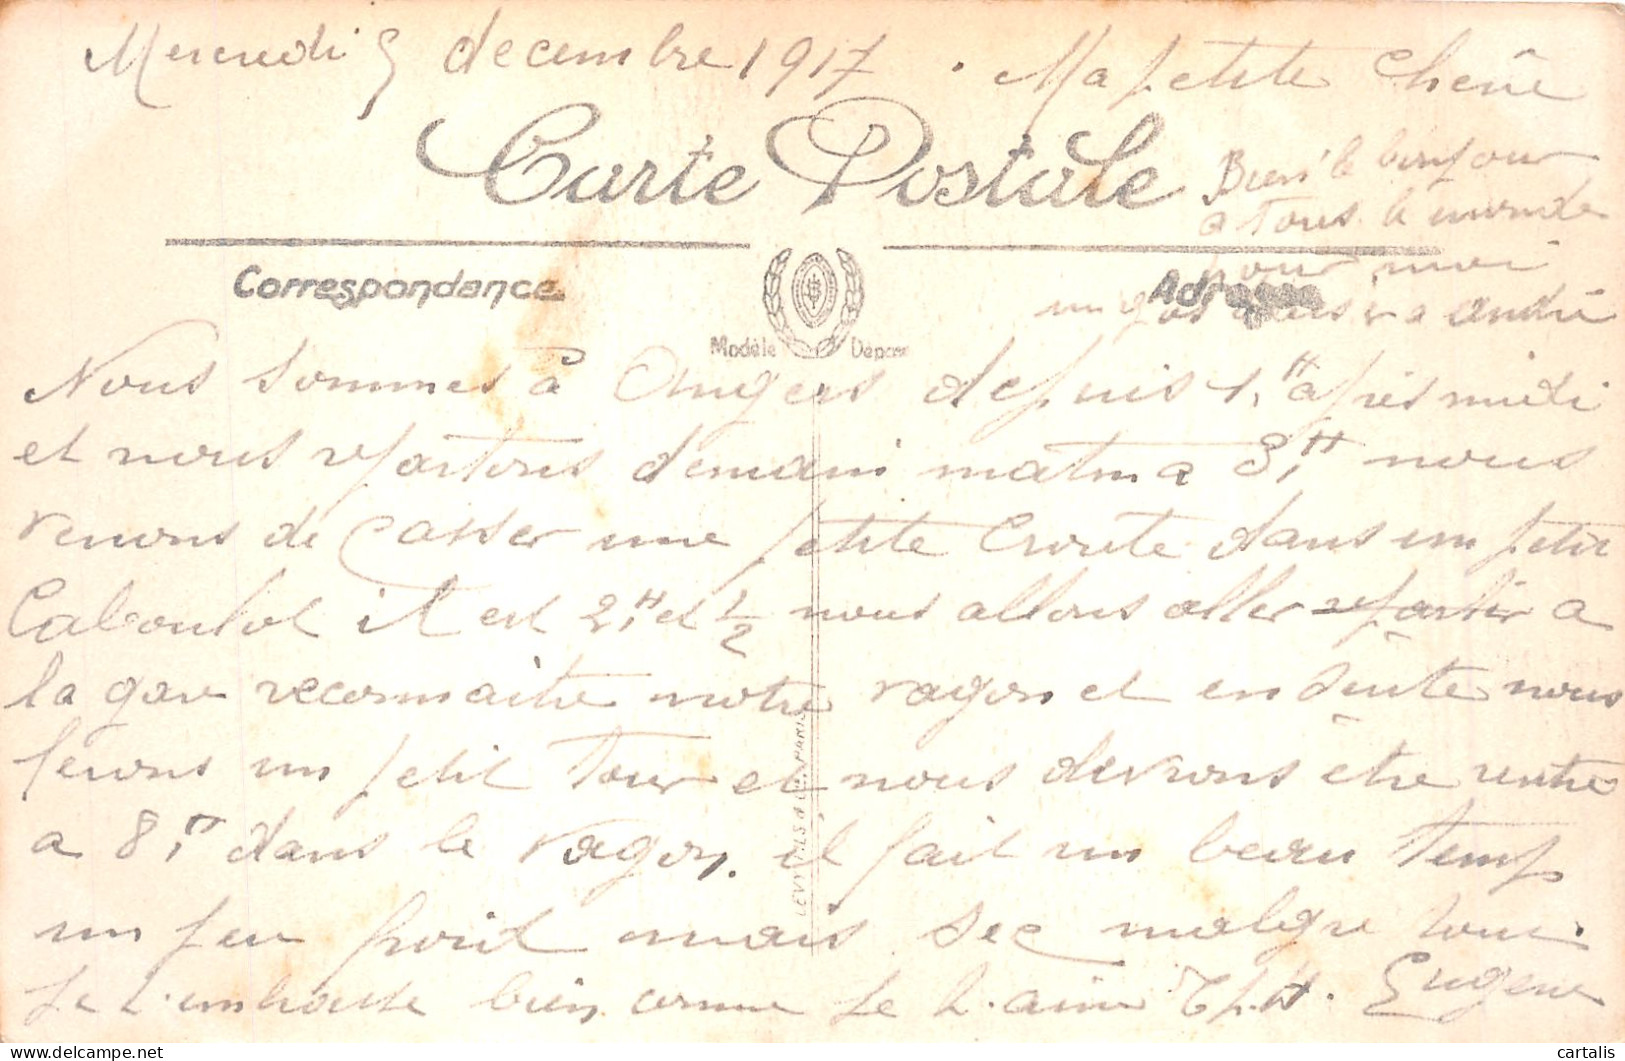 Mercredi 5 decembre 1917. Ma petite cherie
Carte Postale
Bien le bonjour
a tous le monde
pour moi
un gros a andré
Correspondance
Adresse
Modèle Déposé
Nous sommes à Angers depuis 1.H apres midi
et nous repartons demain matin a 3.H nous
venons de casser une petite croute dans un petit
Caboulot il est 2.H et 1/2 nous allons aller a
la gare reconnaitre notre vagon et en suite nous
ferons un petit tour et nous devrons être rentre
a 8.H dans le vagon. il fait un beau temp
un peu froid mais sec malgre tout.
Je t.embrasse bien comme je t.aime Eugene
LEVY FILS & Cie PARIS
cartalis